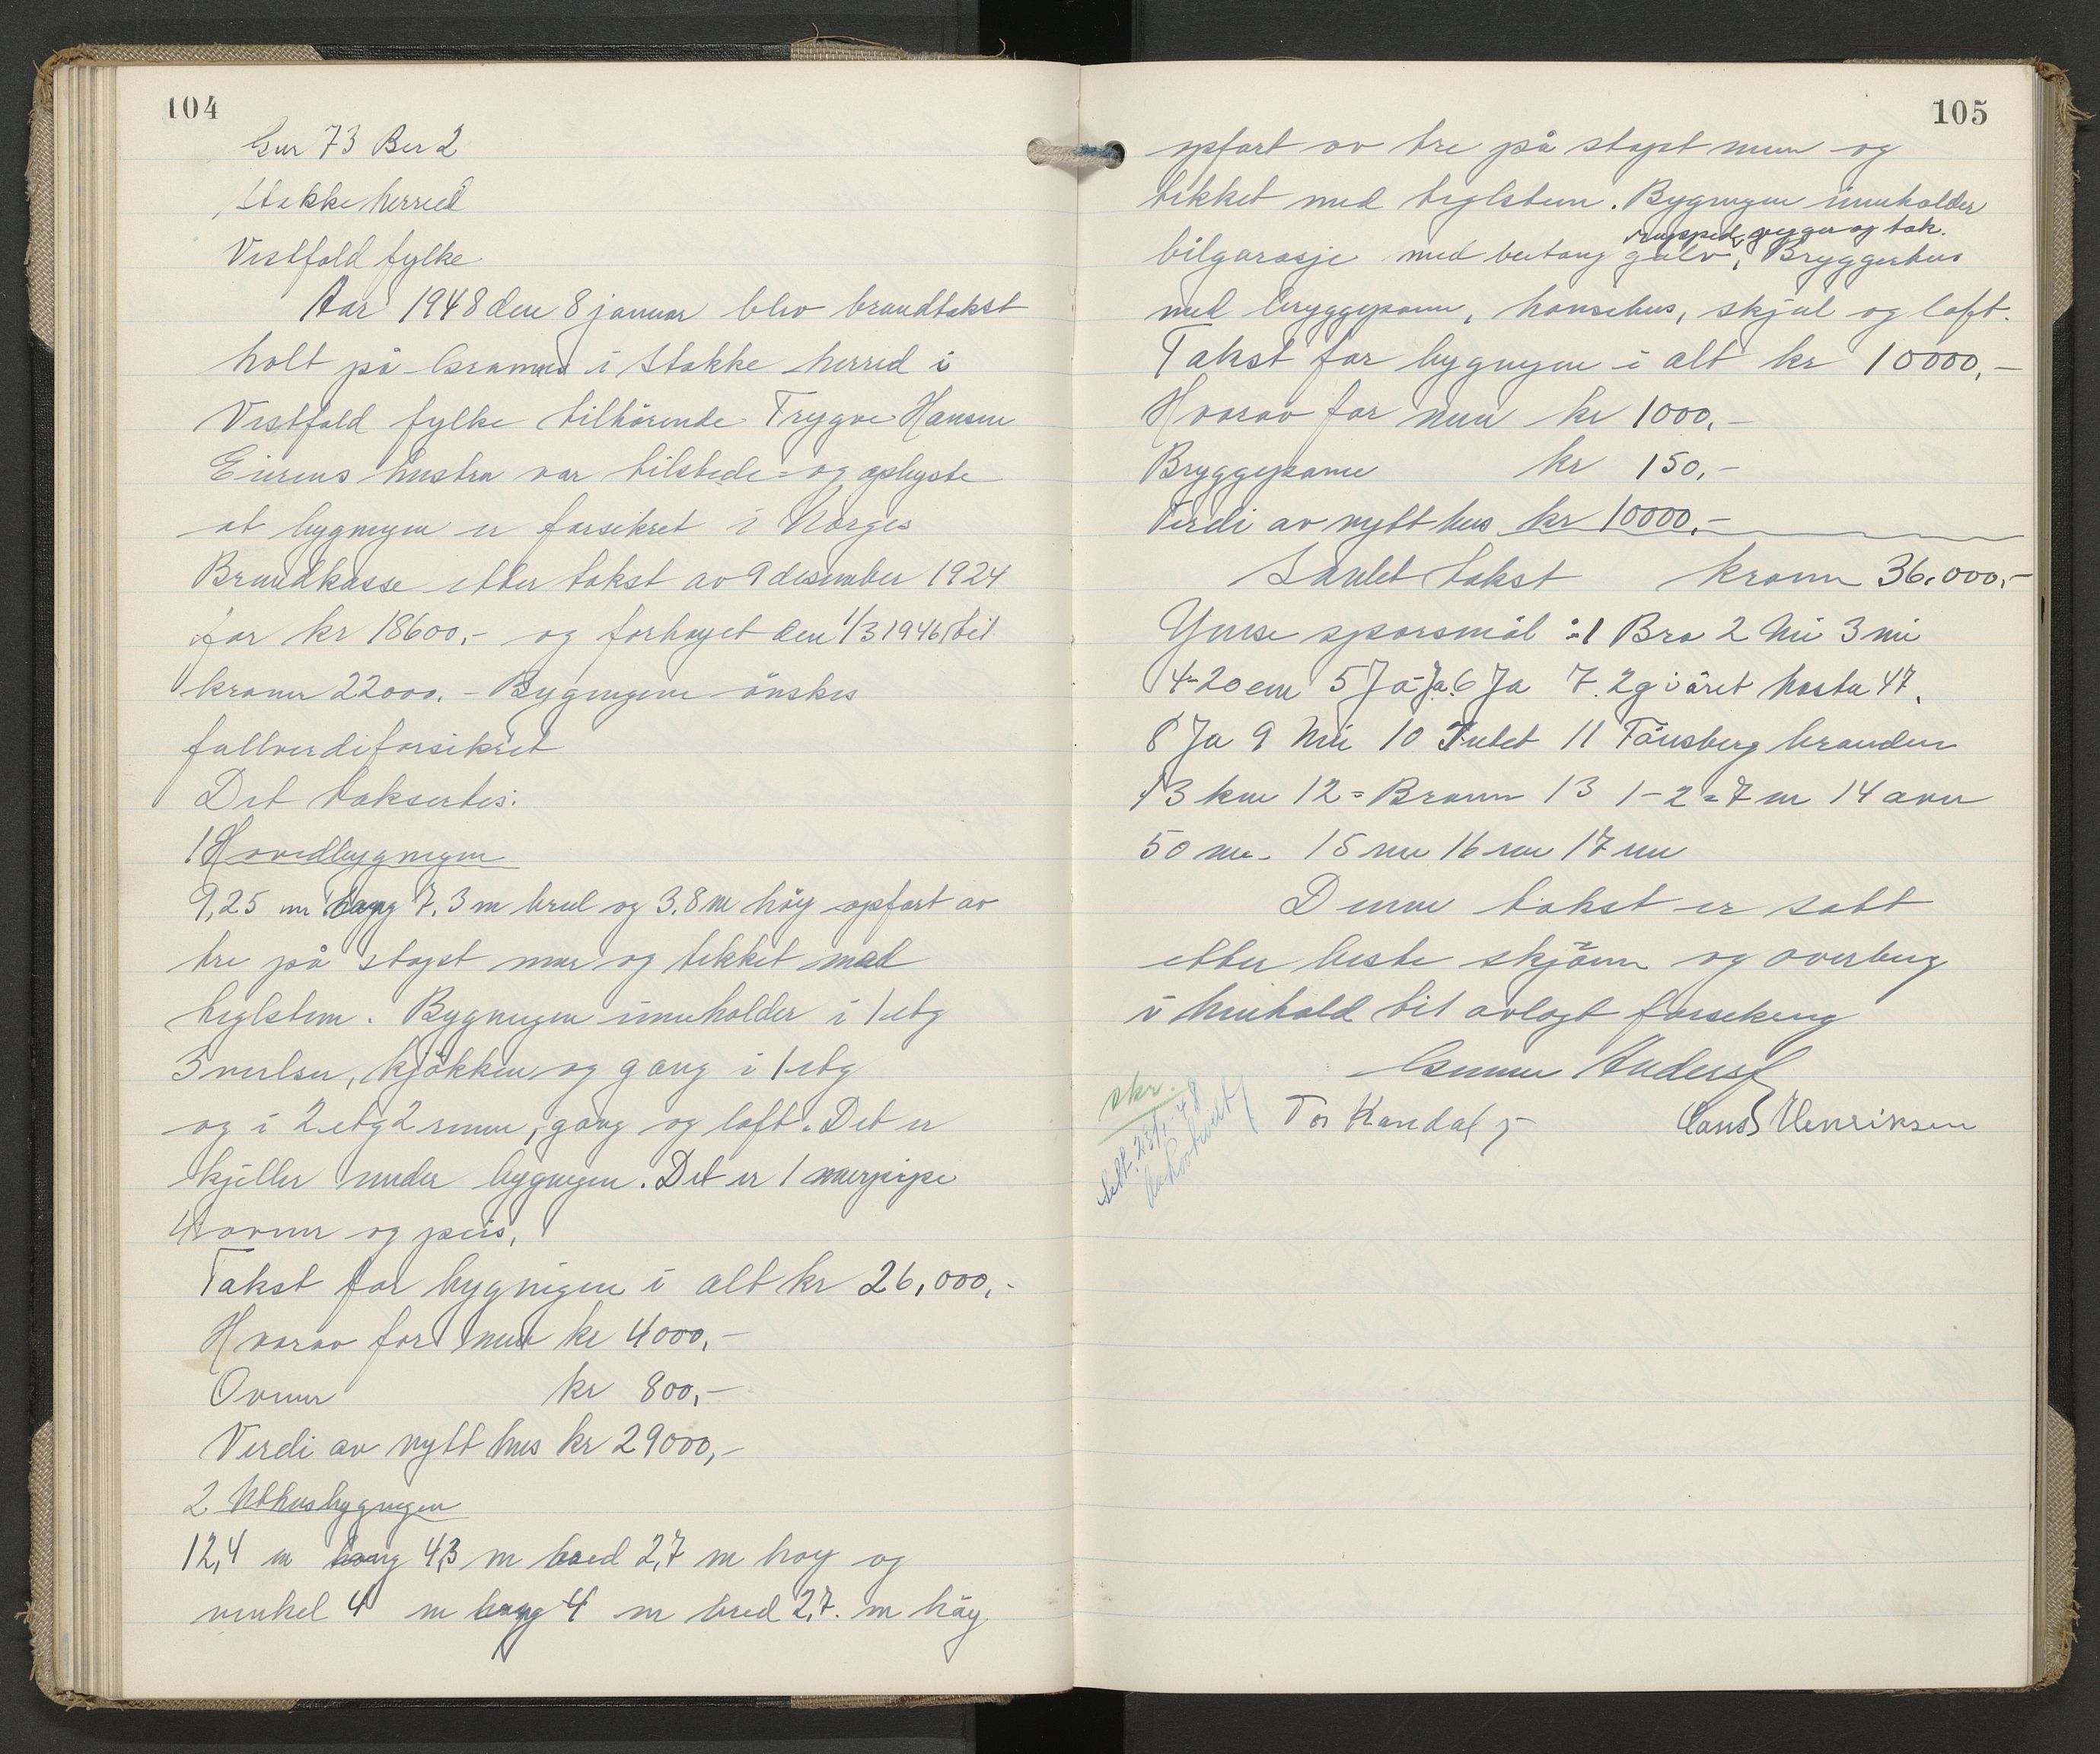 104
Gnr 73 Bnr 2
Stokke herred
Vestfold fylke
Aar 1948 den 8 januar blev brandtakst
holt på i Stokke herred i
Vestfold fylke tilhörende Trygve Hansen
Eierens hustru var tilstede og oplyste
at bygningen er forsikret i Norges
Brandkasse etter takst av 9 desember 1924
for kr 18600,- og forhøyet den 1/3 1946 til
kroner 22000,- Bygningene önskes
fullverdiforsikret
Det taksertes:
1 Hovedbygningen
9,25 m lang 7,3 m bred og 3,8 m høy opført av
tre på støpt mur og tekket med
teglsten. Bygningen inneholder i 1 etg
3 verelser, kjökken og gang i 1 etg
og i 2 etg 2 rum, gang og loft. Det er
kjeller under bygningen. Det er 1 murpipe
4 ovner og peis.
Takst for bygningen i alt kr 26,000,-
Hvorav for mur kr 4000,-
Ovner kr 800,-
Verdi av nytt hus kr 29000,-
2 Uthusbygningen
12,4 m lang 4,3 m bred 2,7 m høy og
vinkel 4 m lang 4 m bred 2,7 m høy
105
opført av tre på støpt mur og
tekket med teglsten. Bygningen inneholder
vegger og tak.
bilgarasje med betong gulv, Bryggerhus
med bryggepanne, hønsehus, skjul og loft.
Takst for bygningen i alt kr 10000,-
Hvorav for mur kr 1000,-
Bryggepanne kr 150,-
Verdi av nytt hus kr 10000,-
Samlet takst kroner 36,000,-
Ymse spørsmål : 1 Bra 2 Nei 3 nei
4-20 cm 5 Ja-Ja 6 Ja 7. 2 g i året høsten 47.
8 Ja 9 Nei 10 Intet 11 Tönsberg branden
13 km 12 = Brønn 13 1-2 = 7 m 14 over
50 m. 15 nei 16 nei 17 nei
Denne takst er satt
etter beste skjönn og overbev
i henhold til avlagt forsikring
Gunnar Anders
Tor Kandal Hans Henriksen
skr.
Sett